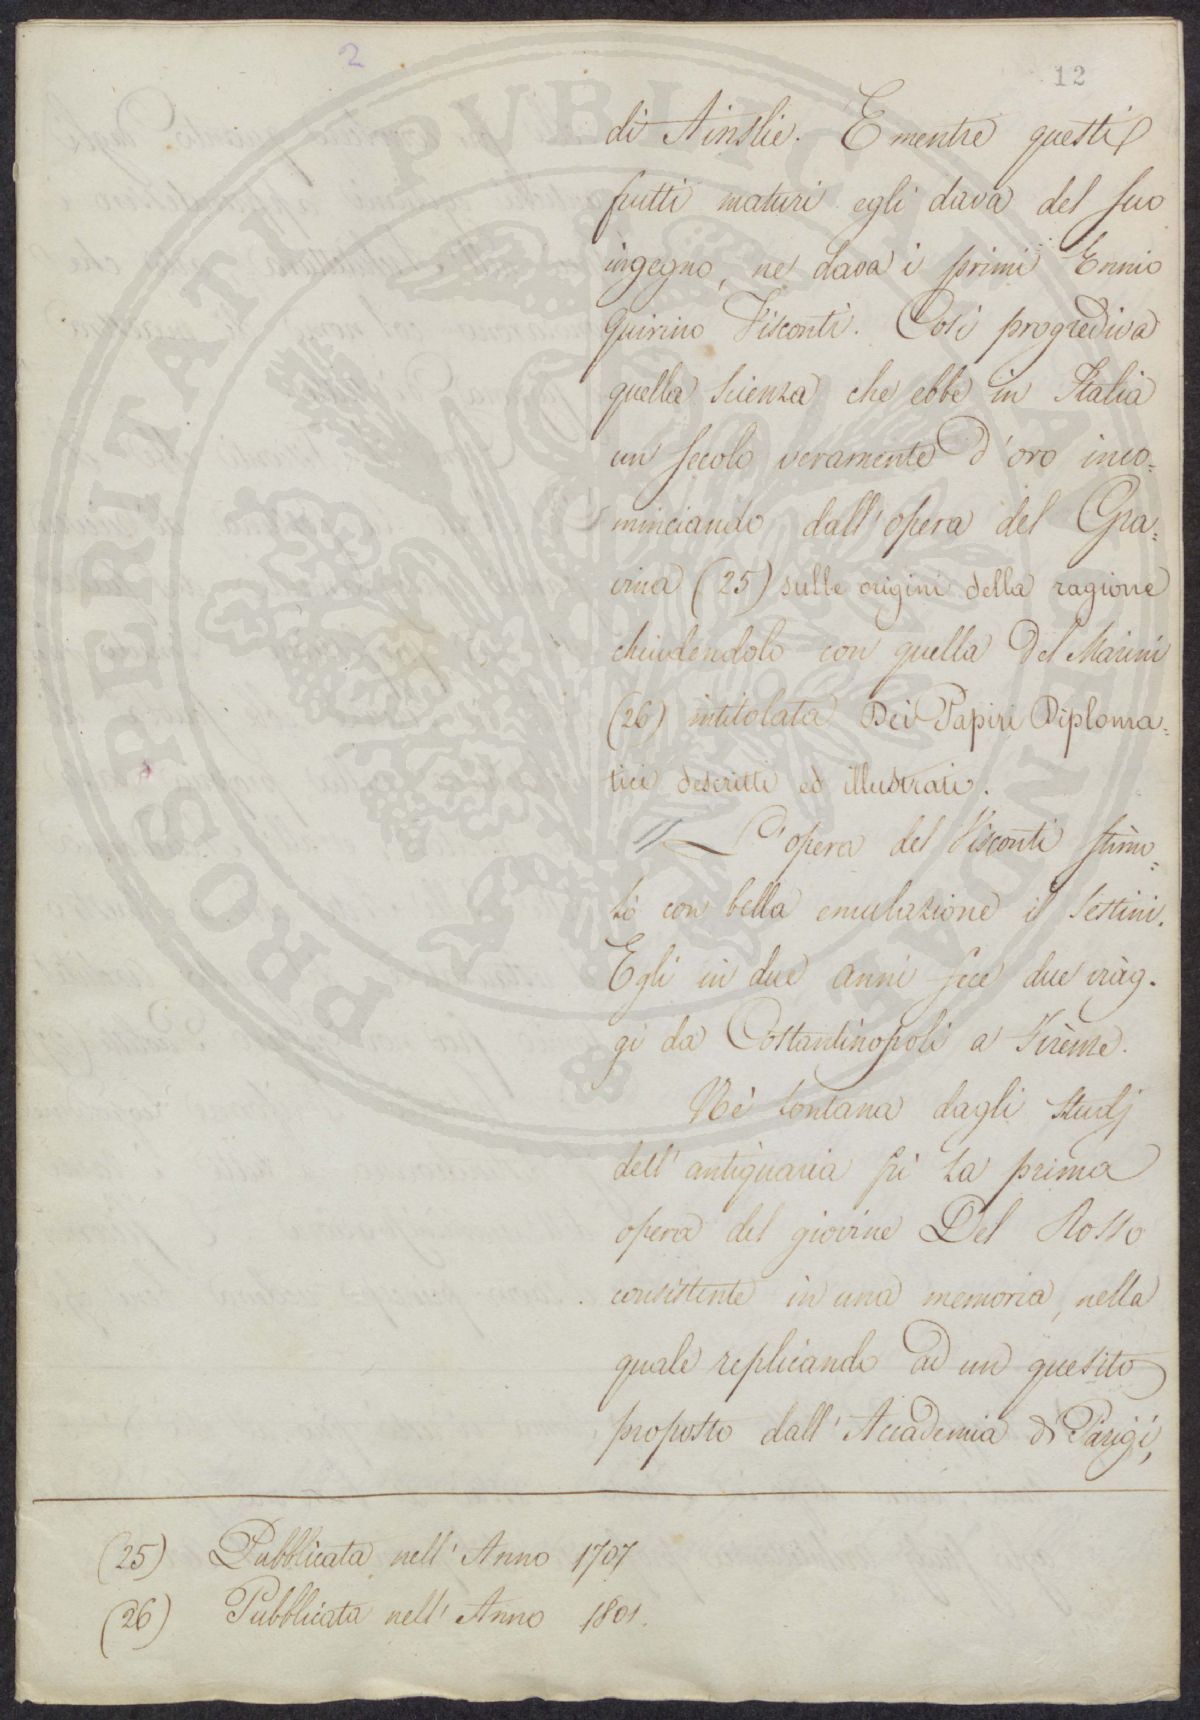 2
12
di Ainslie. E mentre questi
frutti maturi egli dava del suo
ingegno, ne dava i primi Ennio
Quirino Visconti. Così progrediva
quella scienza che ebbe in Italia
un secolo veramente d'oro inco-
minciando dall'opera del Gra-
vina (25) sulle origini della ragione
chiudendolo con quella del Marini
(26) intitolata Dei Papiri Diploma-
tici descritti ed illustrati.
L'opera del Visconti stimo-
lò con bella emulazione il Sestini.
Egli in due anni fece due viag-
gi da Costantinopoli a Firenze.
Nè lontana dagli studj
dell'antiquaria fù la prima
opera del giovine Del Rosso
consistente in una memoria, nella
quale replicando ad un quesito
proposto dall'Accademia di Parigi,
(25) Pubblicata nell'Anno 1707
(26) Pubblicata nell'Anno 1801.
PROSPERITATI PVBLICAE AVGENDAE